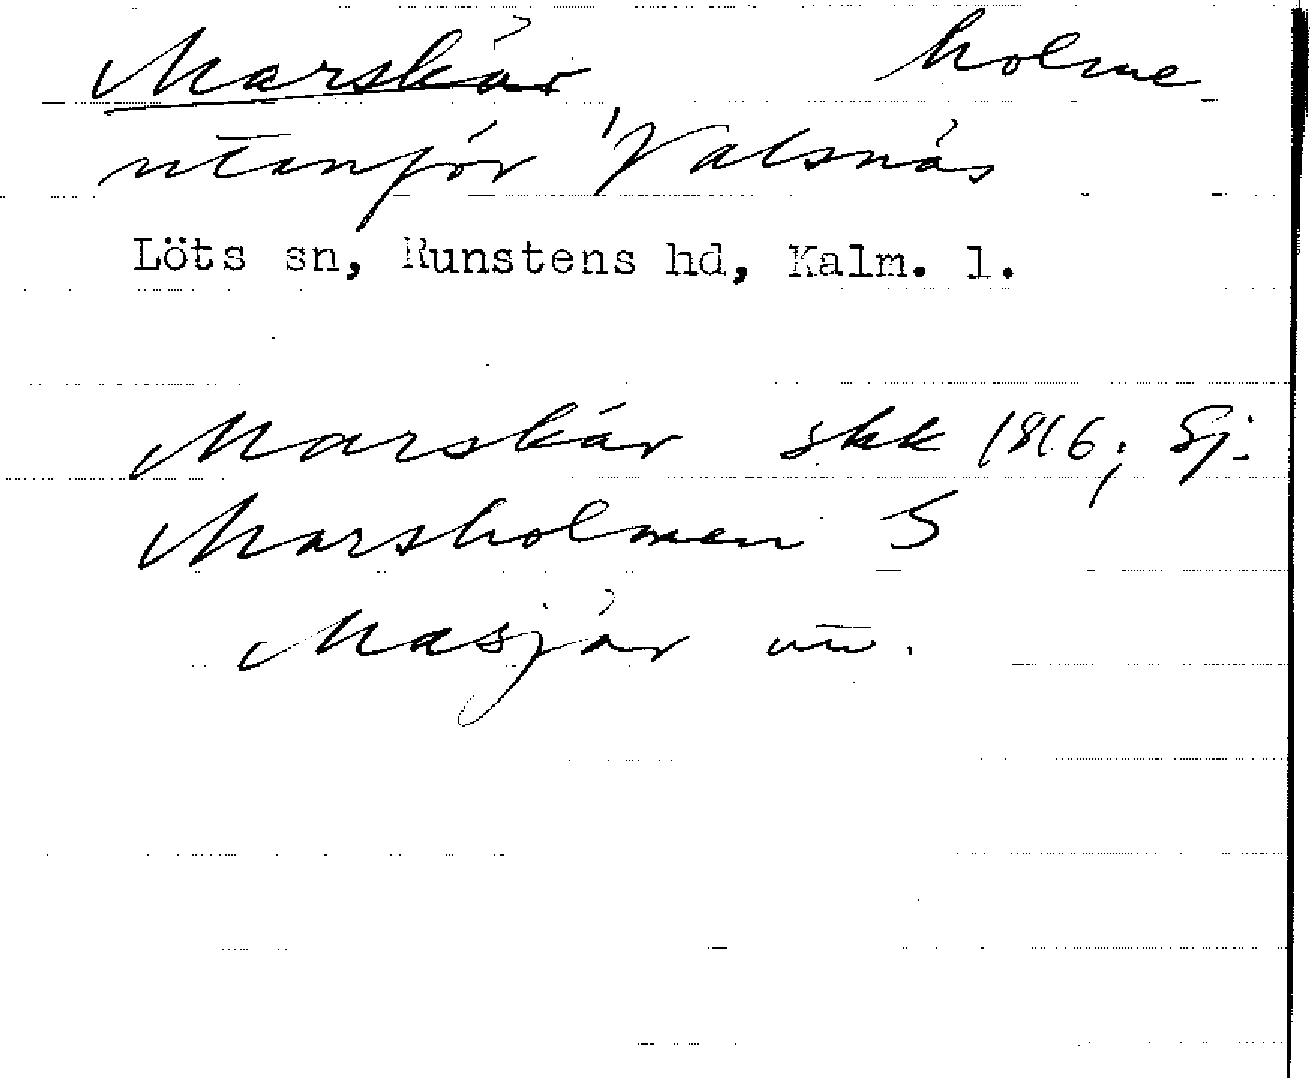 Marskär holme
utanför Valsnäs
Löts sn, Runstens hd, Kalm. l.
Marskär skk 1816; Sj.
Marsholmen S
Masjär uu.